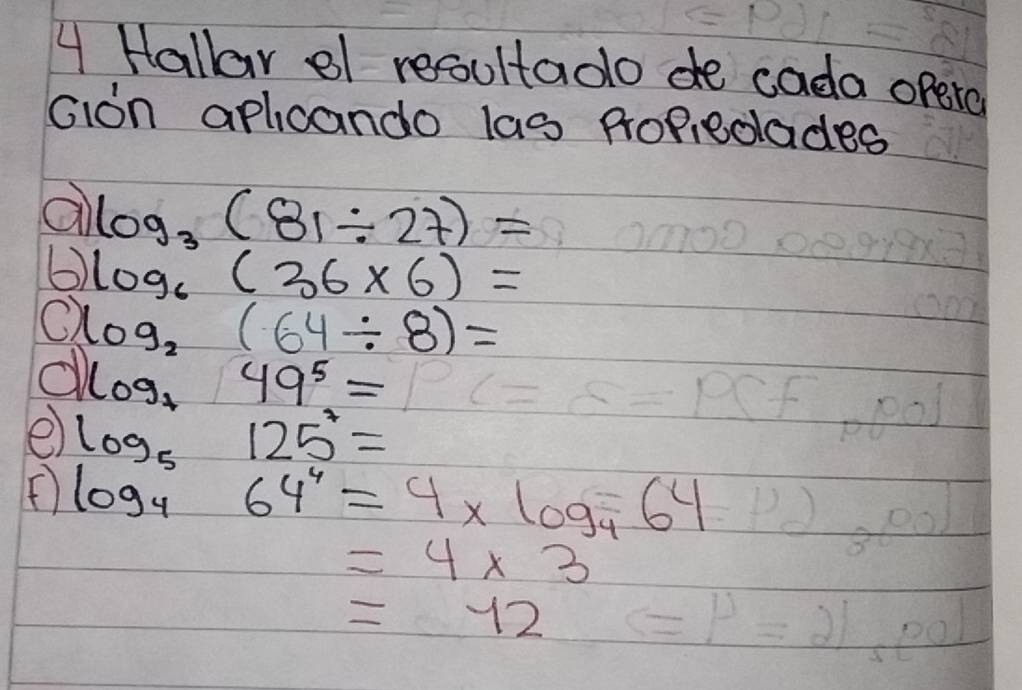 4 Hallar el resultado de cada opera
ción aplicando las propiedades
a) log₃ (81 ÷ 27) =
b) log₆ (36 x 6) =
c) log₂ (64 ÷ 8) =
d) log₇ 49⁵ =
e) log₅ 125⁷ =
f) log₄ 64⁴ = 4 x log₄ 64
= 4 x 3
= 12